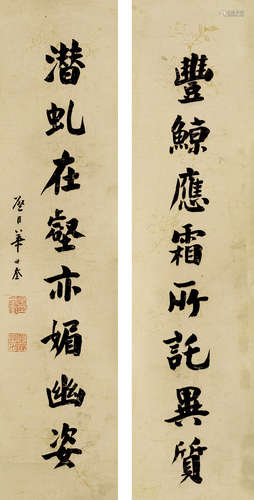 豐鯨應霜所託異質
潛虬在壑亦媚幽姿
華世奎